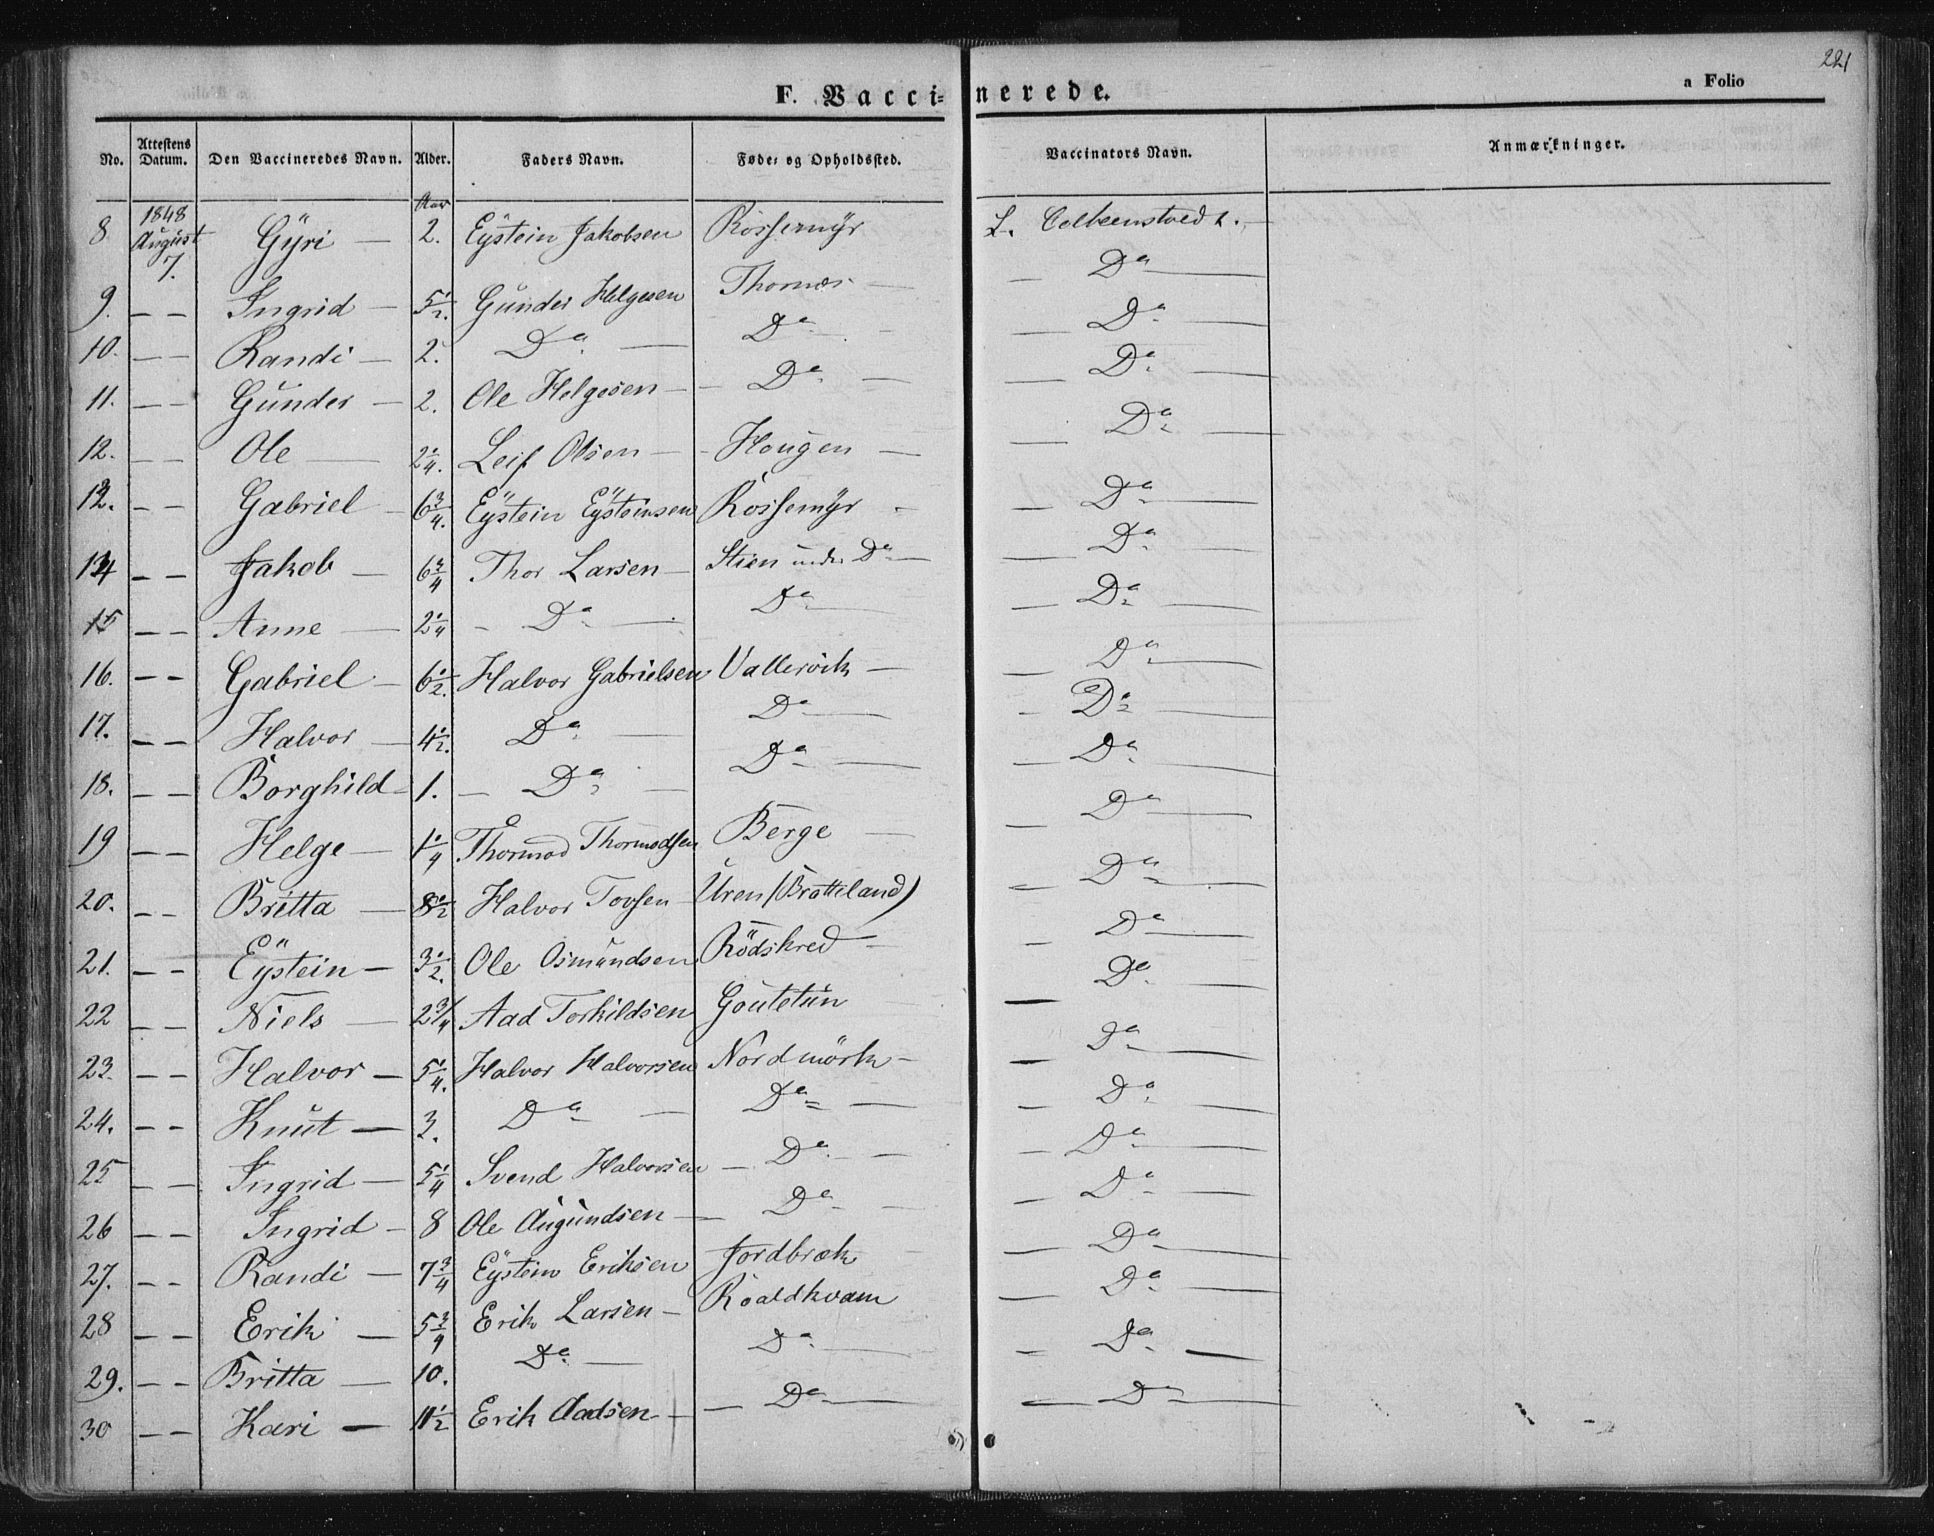 221
F. Vaccinerede.
a Folio
No. Attestens Datum. Den Vaccineredes Navn. Alder. Faders Navn. Føde- og Opholdssted. Vaccinators Navn. Anmærkninger.
Aar
8 1848 August 7. Gÿri — 2. Eÿstein Jakobsen Rossemÿr L.
9. — — Ingrid — 5 1/2. Gunder Helgesen Thornæs — — Da —
10. — — Randi — 2. Da — Da — — Da —
11. — — Gunder — 2. Ole Helgesen — Da — — Da —
12. — — Ole — 2 1/4. Leif Olsen — Hougen — — Da —
13. — — Gabriel — 6 3/4. Eÿstein Eÿsteinsen Rossemÿr — Da —
14 — — Jakob — 6 3/4 Thor Larsen — Stien under Da — — Da —
15 — — Anne — 2 1/4 — Da — Da — — Da —
16. — — Gabriel — 6 1/2. Halvor Gabrielsen Vallevik — — Da —
17. — — Halvor — 4 1/2. Da — Da — — Da —
18. — — Borghild — 1. — Da — Da — — Da —
19 — — Helge — 1 1/4 Thormod Thormodsen Berge — — Da —
20. — — Britta — 8 1/2 Halvor Tovsen Uren (Bratteland) — Da —
21. — — Eÿstein — 3 1/2. Ole Osmundsen Rödskred — — Da —
22 — — Niels — 2 3/4 Aad Torkildsen Goutetun — Da —
23. — — Halvor — 5 1/4. Halvor Halvorsen Nordmörk — — Da —
24. — — Knut — 3. Da — Da — — Da —
25 — — Ingrid — 5 1/4 Svend Halvorsen — Da — — Da —
26 — — Ingrid — 8 Ole Augundsen — Da — — Da —
27. — — Randi — 7 3/4 Eÿstein Eriksen Jordbræk — Da —
28 — — Erik — 5 3/4 Erik Larsen — Roaldkvam — Da —
29. — — Britta — 10. Da — Da — — Da —
30 — — Kari — 11 1/2 Erik Aadsen — — Da — — Da —